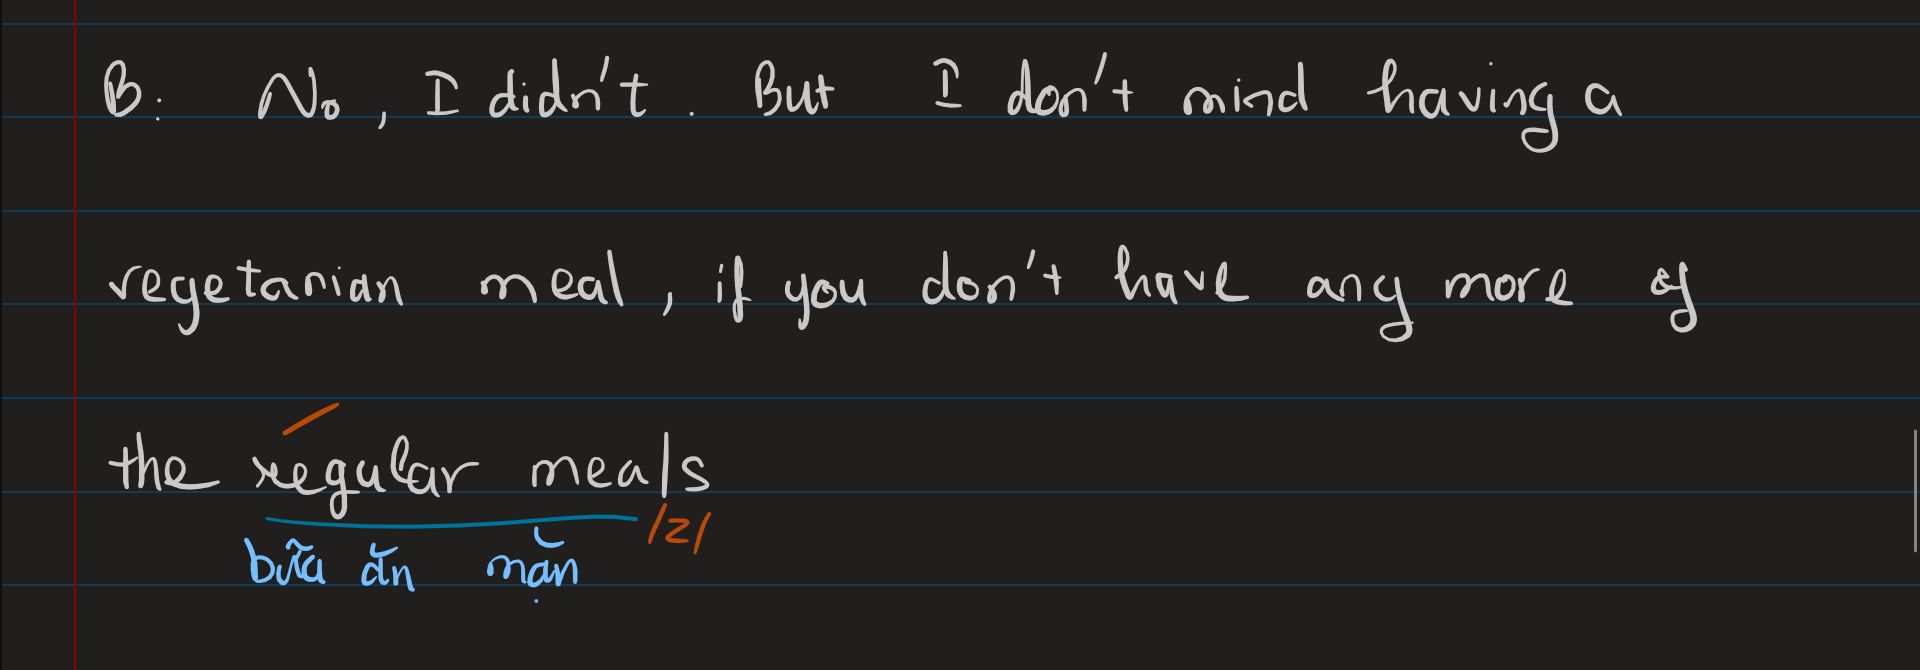 B: No, I didn't. But I don't mind having a
vegetarian meal, if you don't have any more of
the regular meals
/z/
bữa ăn mặn